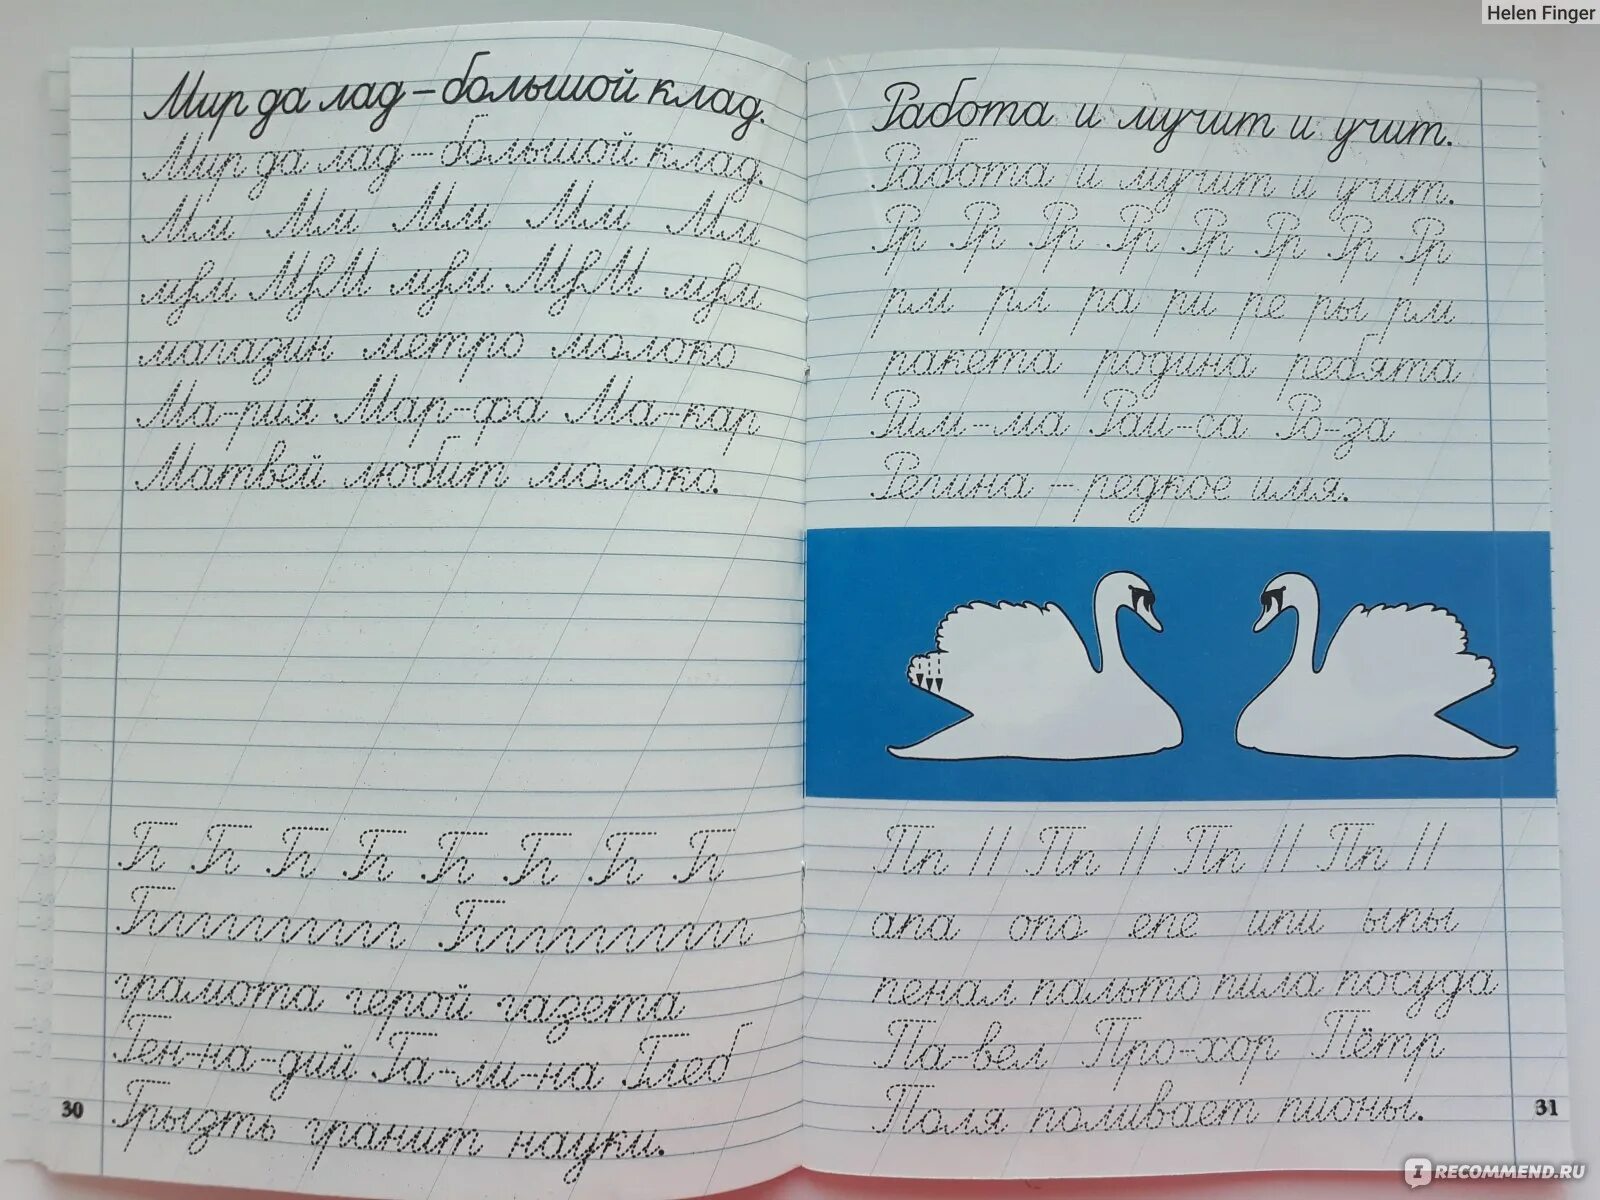 Helen Finger
Мир да лад – большой клад.
Мир да лад – большой клад.
Мм Мм Мм Мм Мм
мум МуМ мум МуМ мум
магазин метро молоко
Ма-рия Мар-фа Ма-кар
Матвей любит молоко.
Гг Гг Гг Гг Гг Гг Гг Гг
Гггггггггг Гггггггггг
грамота герой газета
Ген-на-дий Га-ли-на Глеб
Грызть гранит науки.
30
Работа и мучит и учит.
Работа и мучит и учит.
Рр Рр Рр Рр Рр Рр Рр Рр
рм рл ра ри ре ры рм
ракета родина ребята
Рим-ма Раи-са Ро-за
Регина – редкое имя.
Пп // Пп // Пп // Пп //
апа опо епе ипи ыпы
пенал пальто пила посуда
Па-вел Про-хор Пётр
Поля поливает пионы.
31
IRECOMMEND.RU